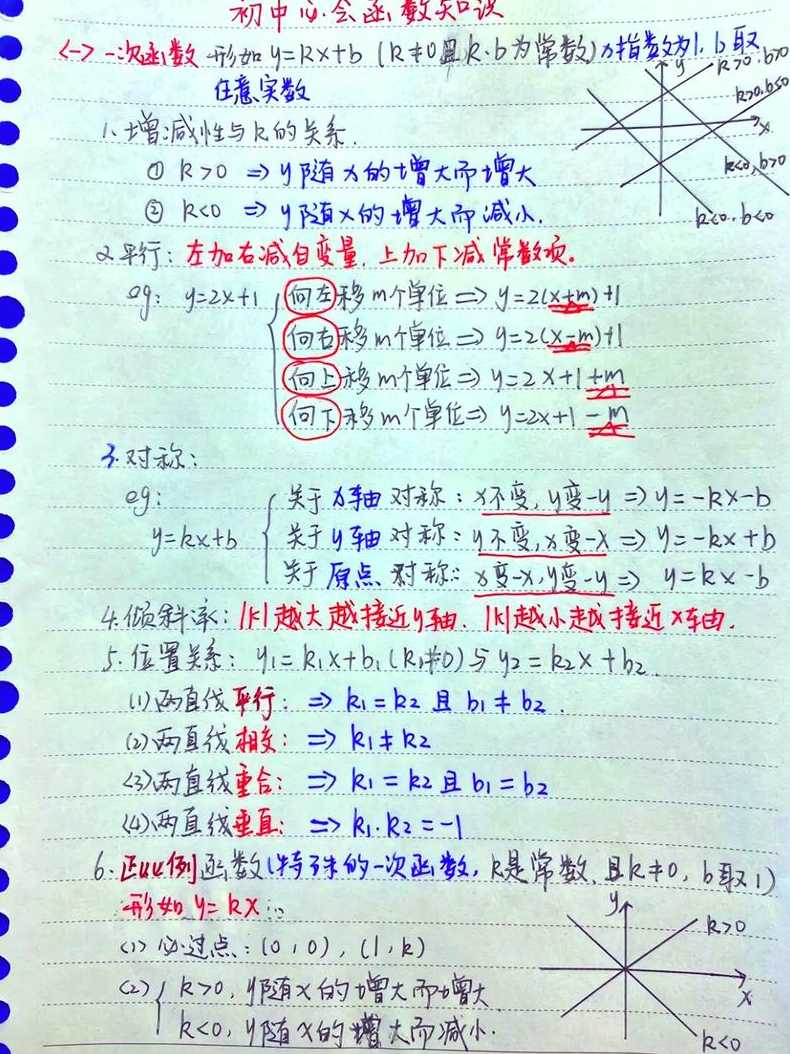 初中必会函数知识
<一> 一次函数 形如 y=kx+b (k≠0且k·b为常数) x指数为1, b取
任意实数
y
k>0, b>0
k>0, b≤0
x
k<0, b>0
k<0, b<0
1. 增减性与k的关系.
① k>0 ⇒ y随x的增大而增大
② k<0 ⇒ y随x的增大而减小.
2. 平行: 左加右减自变量, 上加下减常数项。
eg: y=2x+1
向左移m个单位 ⇒ y=2(x+m)+1
向右移m个单位 ⇒ y=2(x-m)+1
向上移m个单位 ⇒ y=2x+1+m
向下移m个单位 ⇒ y=2x+1-m
3. 对称:
eg:
y=kx+b
关于x轴对称: x不变, y变-y ⇒ y=-kx-b
关于y轴对称: y不变, x变-x ⇒ y=-kx+b
关于原点对称: x变-x, y变-y ⇒ y=kx-b
4. 倾斜率: |k|越大越接近y轴. |k|越小越接近x轴.
5. 位置关系: y₁=k₁x+b₁(k₁≠0)与y₂=k₂x+b₂.
(1) 两直线平行: ⇒ k₁=k₂且b₁≠b₂.
(2) 两直线相交: ⇒ k₁≠k₂
(3) 两直线重合: ⇒ k₁=k₂且b₁=b₂
(4) 两直线垂直: ⇒ k₁·k₂=-1
6. 正比例函数(特殊的一次函数, k是常数, 且k≠0, b取1)
形如 y=kx:
(1) 必过点: (0,0), (1,k)
(2) k>0, y随x的增大而增大
k<0, y随x的增大而减小.
y
k>0
x
k<0